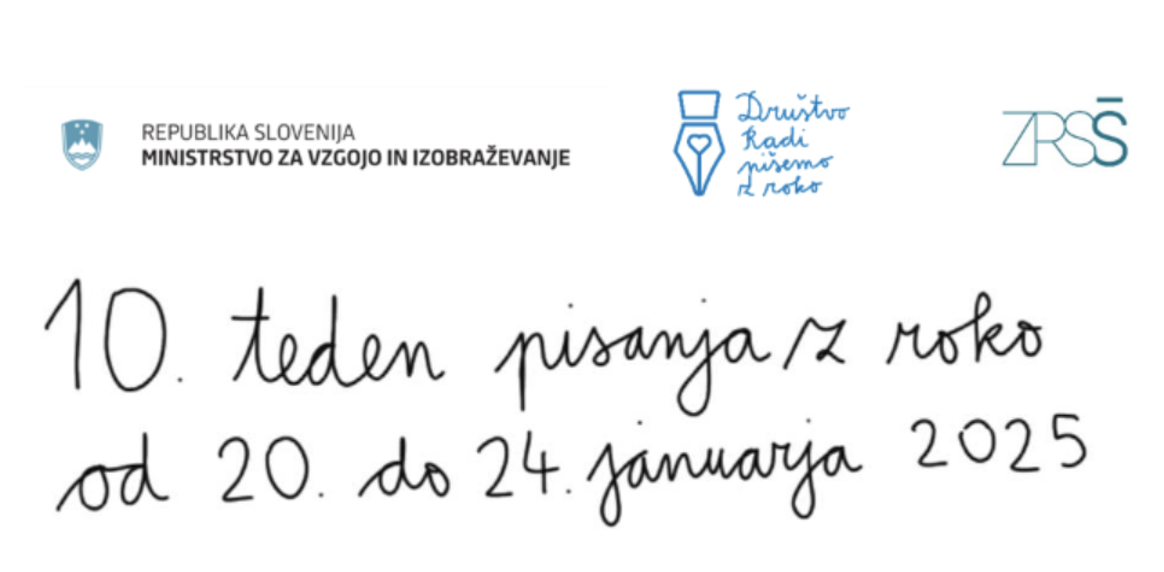 REPUBLIKA SLOVENIJA
MINISTRSTVO ZA VZGOJO IN IZOBRAŽEVANJE
Društvo
Radi
pišemo
z roko
ZRSŠ
10. teden pisanja z roko
od 20. do 24. januarja 2025